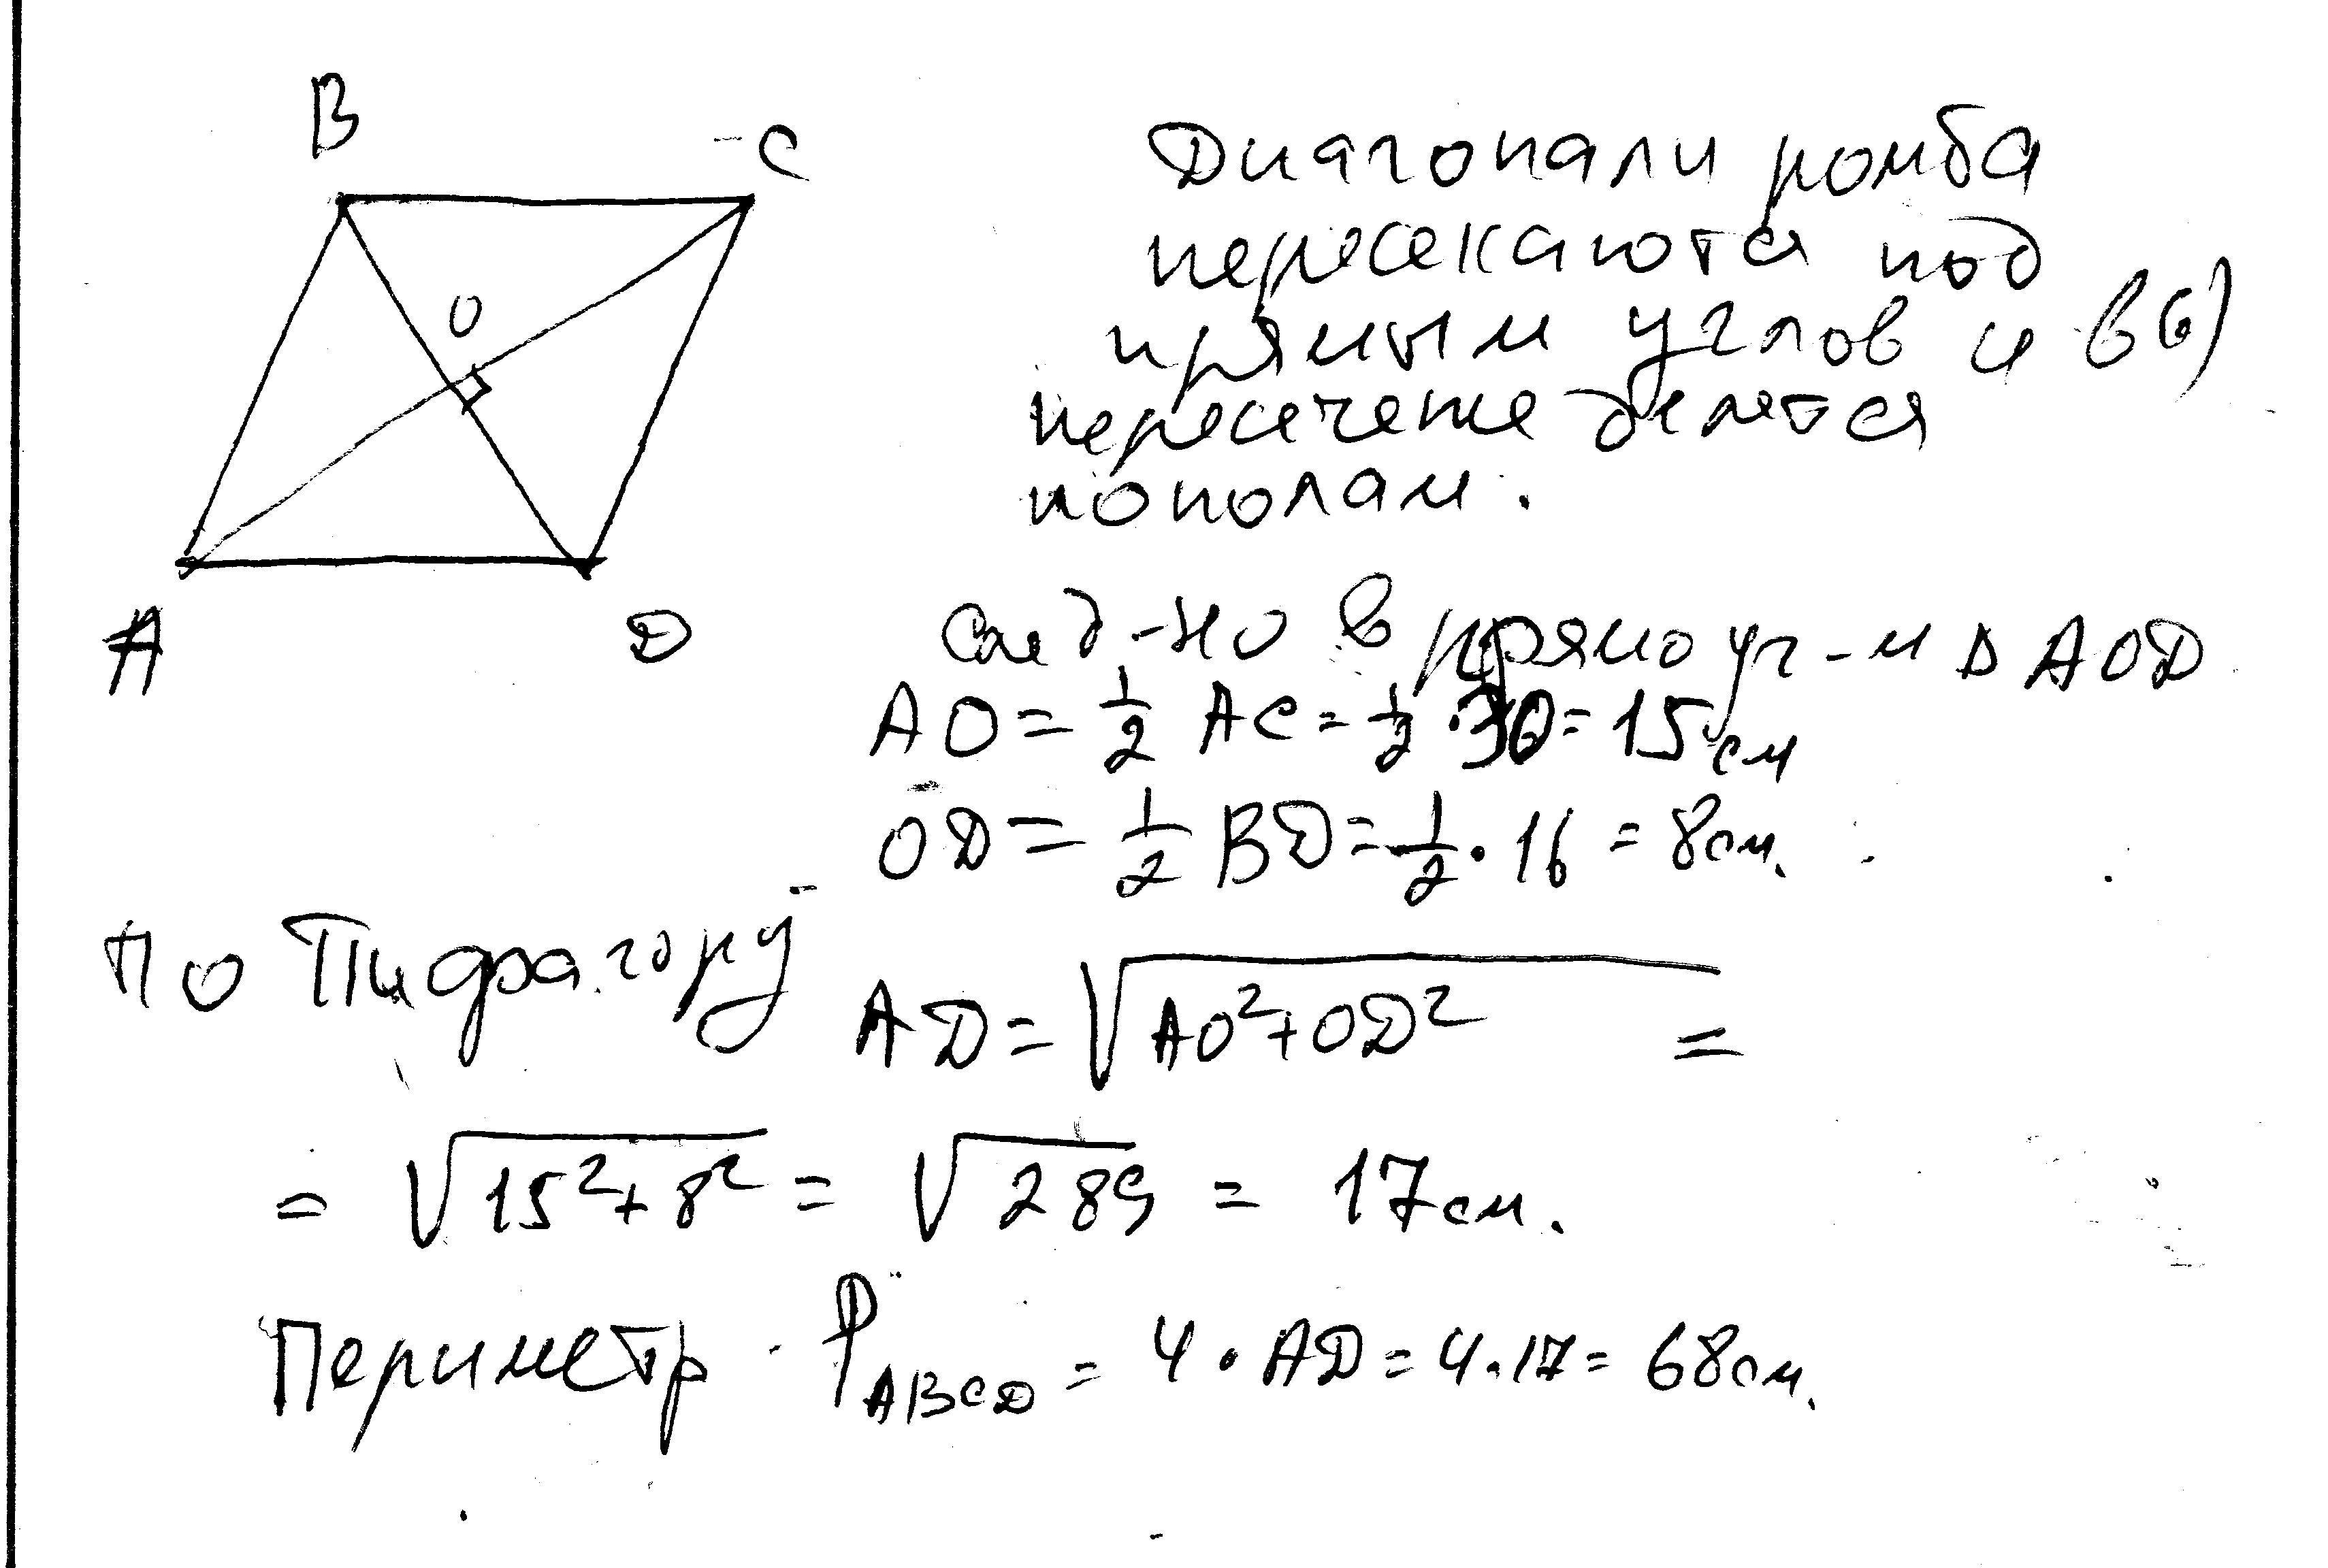 B
C
O
A
D
Диагонали ромба
пересекаются под
прямым углов и в
пересечение делятся
пополам.
след-но в прямоуг-м Δ AOD
AO = 1/2 AC = 1/2 · 30 = 15 см
OD = 1/2 BD = 1/2 · 16 = 8 см.
По Пифагору
AD = √(AO² + OD²) =
= √(15² + 8²) = √289 = 17 см.
Периметр P_ABCD = 4 · AD = 4 · 17 = 68 см.